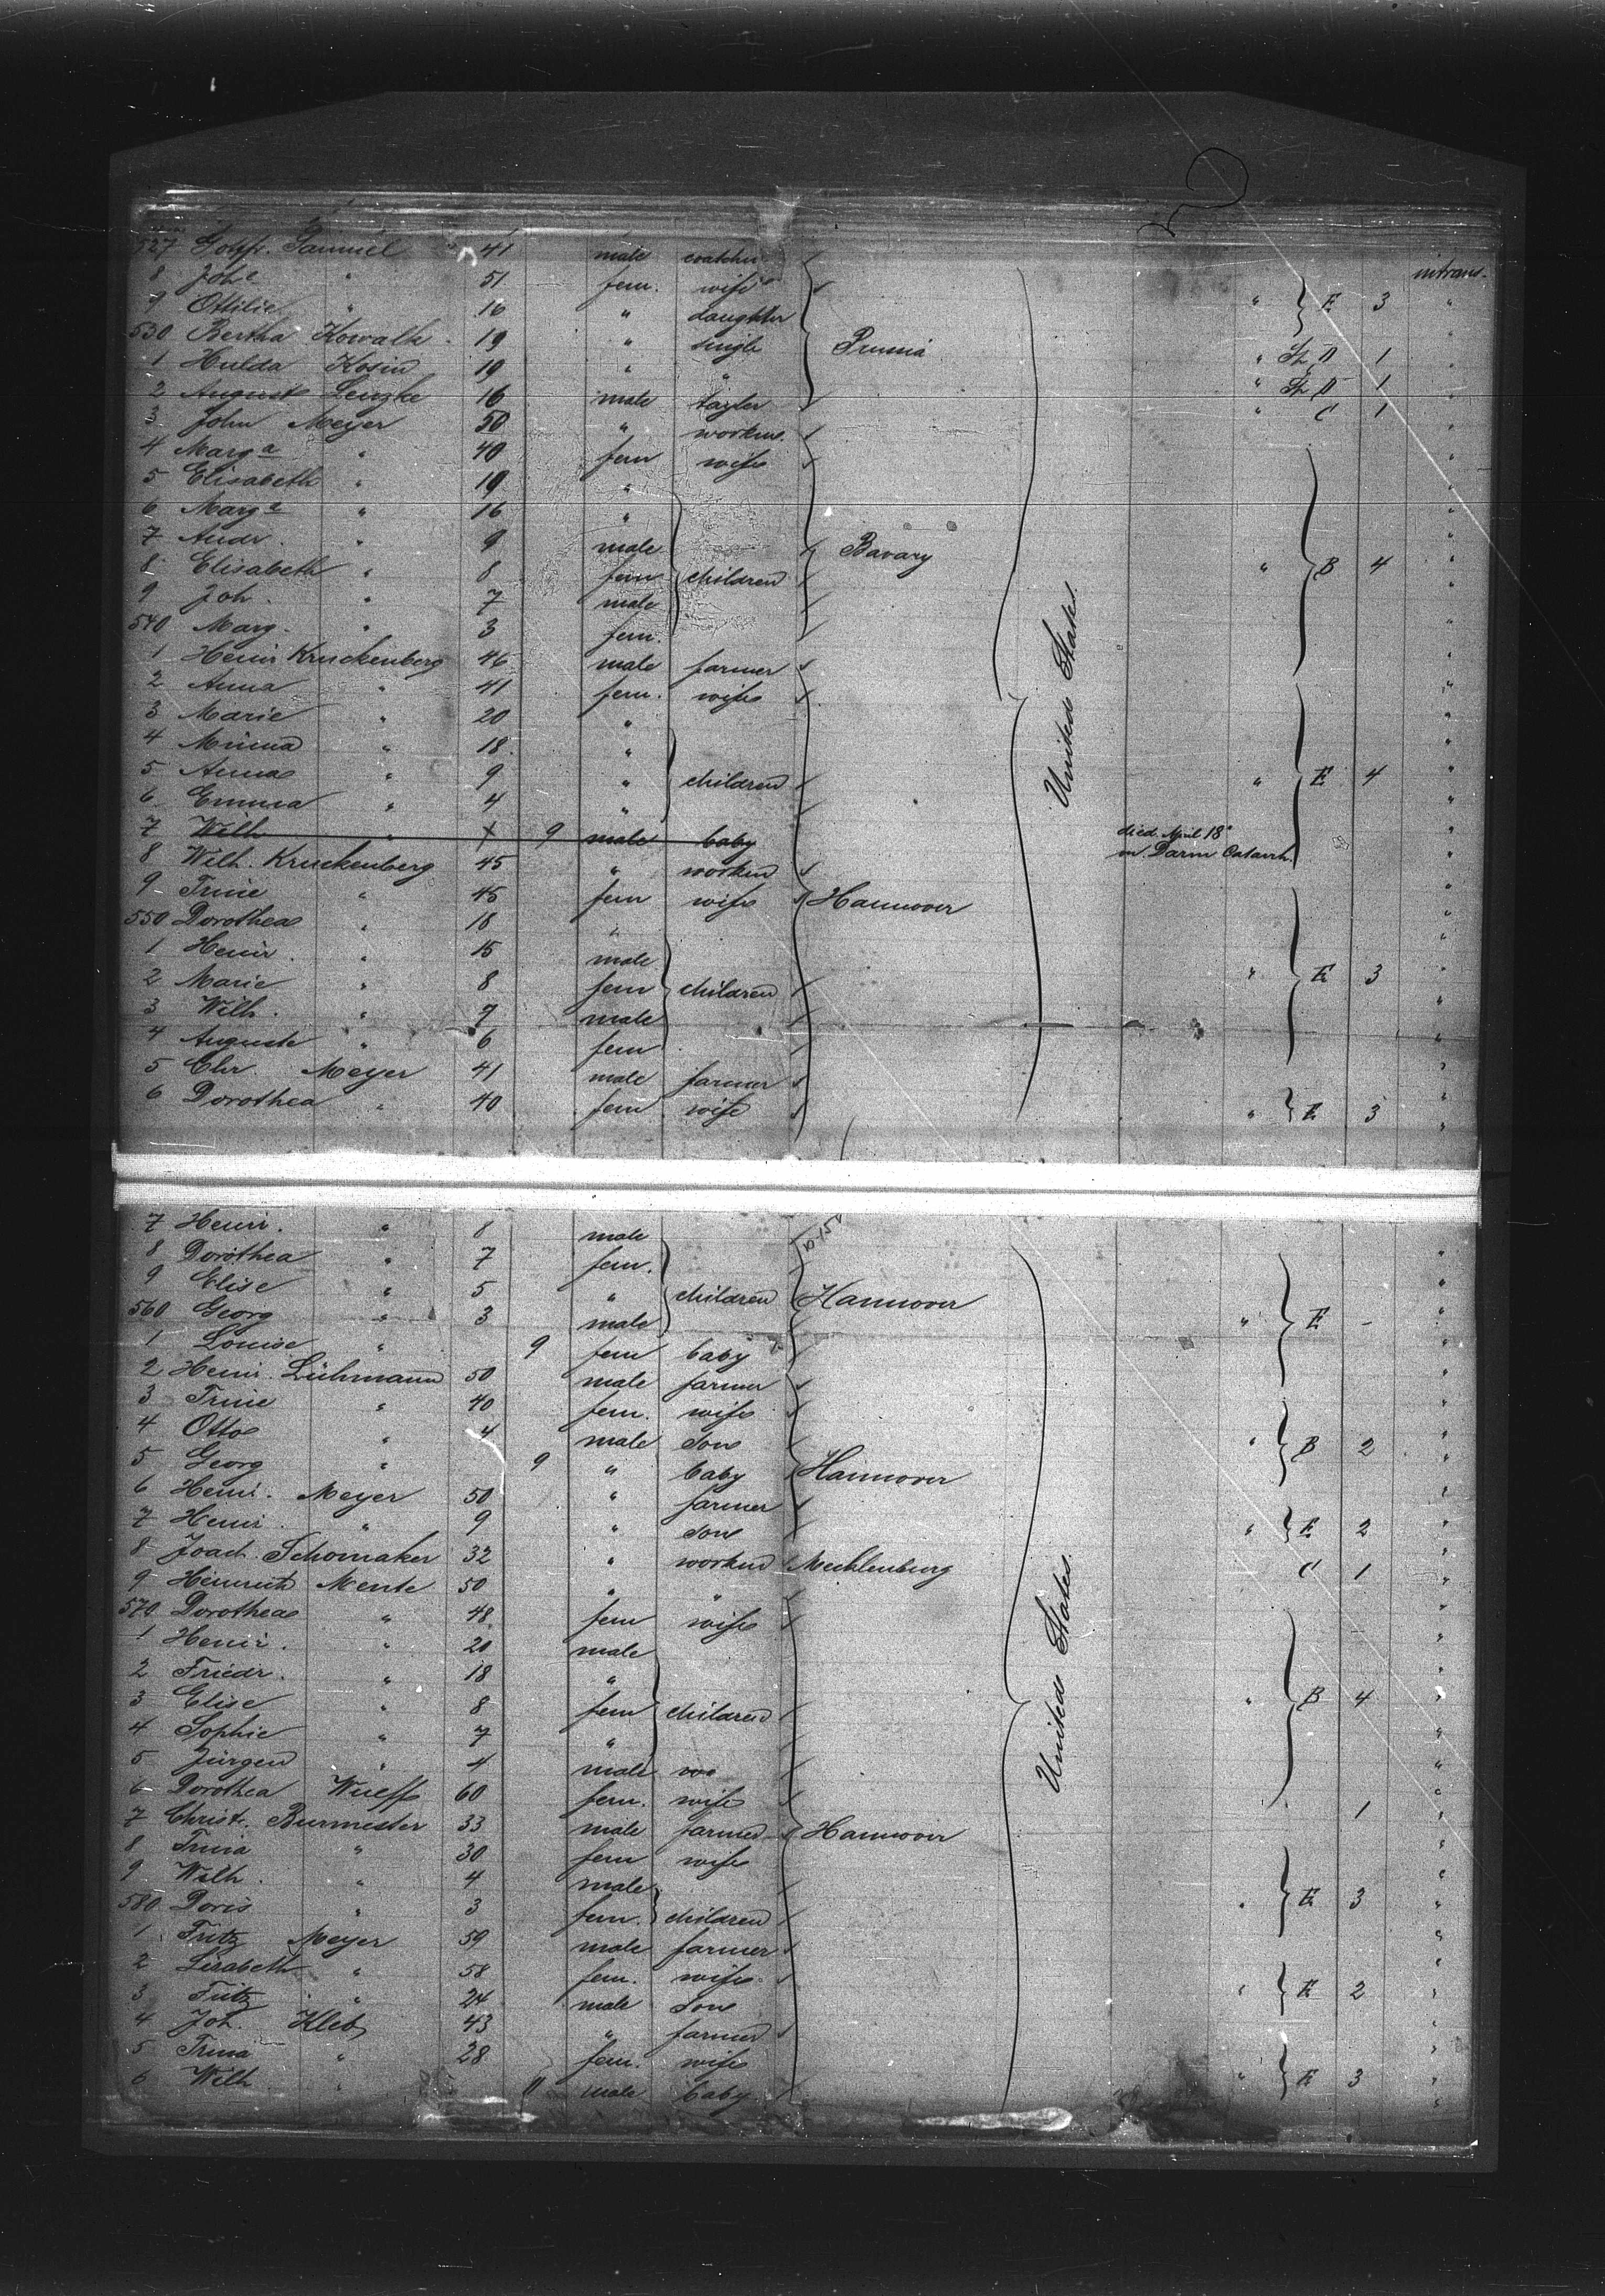 527 Gottfr. Samuel 41 male
8 Johe " 51 fem. wife intrans.
9 Ottilie " 16 " daughter " } E 3 "
530 Bertha Kowalk 19 " single Prussia "
1 Hulda Kosin 19 " " " D 1 "
2 August Lenzke 16 male tayler " D 1
3 John Meyer 50 " workm. " C 1 "
4 Marga " 40 fem wife "
5 Elisabeth " 19 " "
6 Marga " 16 " "
7 Andr. " 9 male Bavary "
8 Elisabeth " 8 fem children " } B 4 "
9 Joh. " 7 male "
540 Marg. " 3 fem. "
1 Heinr Kruckenberg 46 male farmer "
2 Anna " 41 fem. wife "
3 Marie " 20 " United States. "
4 Minna " 18 " "
5 Anna " 9 " children " } E 4 "
6 Emma " 4 " "
7 Wilh " 9 male baby died April 18" "
m. Darm Catarrh.
8 Wilh. Kruckenberg 45 " workm "
9 Trine " 45 fem wife Hannover "
550 Dorothea " 18 " "
1 Heinr. " 15 male "
2 Marie " 8 fem children " } E 3 "
3 Wilh. " 7 male "
4 Auguste " 6 fem "
5 Chr. Meyer 41 male farmer "
6 Dorothea " 40 fem wife " } E 3 "
7 Heinr. " 8 male
8 Dorothea " 7 fem. "
9 Elise " 5 " children Hannover "
560 Georg " 3 male " } E - "
1 Louise " 9 fem baby "
2 Heinr. Lühmann 50 male farmer "
3 Trine " 40 fem. wife "
4 Otto " 4 male son " } B 2 "
5 Georg " 9 " baby Hannover "
6 Heinr. Meyer 50 " farmer "
7 Heinr. " 9 " son " } E 2 "
8 Joach. Schomaker 32 " workm Mecklenburg C 1 "
9 Heinrich Mente 50 " " "
570 Dorothea " 48 fem wife "
1 Heinr. " 20 male United States. "
2 Friedr. " 18 " "
3 Elise " 8 fem children " } B 4 "
4 Sophie " 7 " "
5 Jürgen " 4 male "
6 Dorothea Wulff 60 fem. wife 1 "
7 Christ. Burmester 33 male farmer Hannover "
8 Trina " 30 fem wife "
9 Wilh. " 4 male "
580 Doris " 3 fem. children " } E 3 "
1 Fritz Meyer 59 male farmer "
2 Lisabeth " 58 fem. wife "
3 Fritz " 24 male son " } E 2 "
4 Joh. Kleb 43 " farmer "
5 Trina " 28 fem. wife "
6 Wilh " 11 male baby " } E 3 "